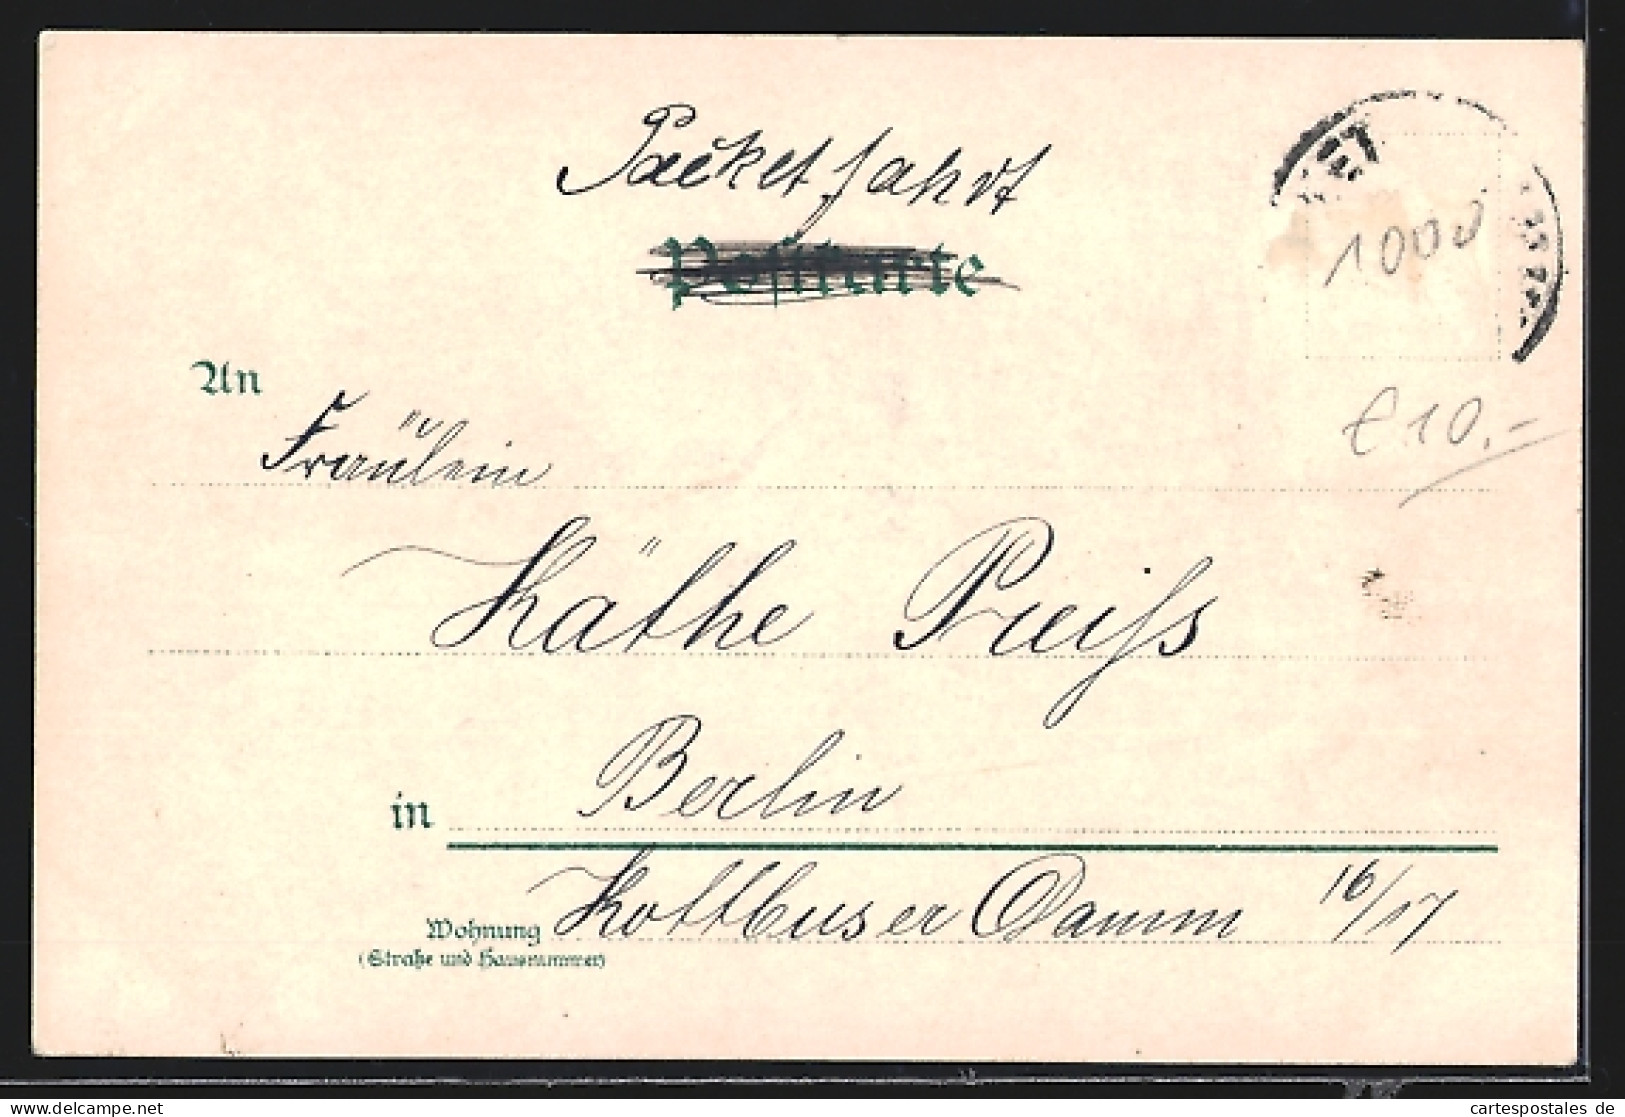 Packetfahrt
Postkarte
1000
€ 10.-
An
Fräulein
Käthe Preiß
in Berlin
Wohnung Kottbuser Damm 16/17
(Straße und Hausnummer)
cartespostales de